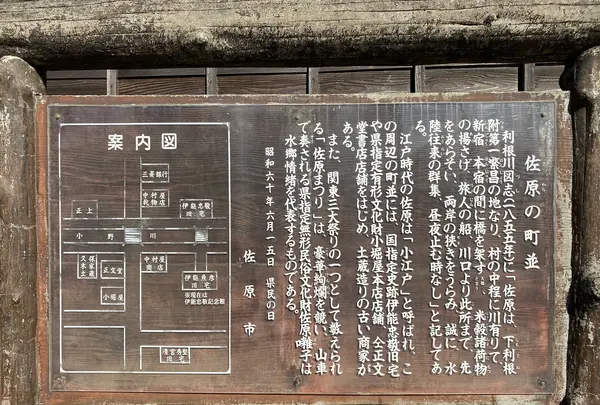 佐原の町並
利根川図志(一八五五年)に「佐原は、下利根
附第一繁昌の地なり、村の中程に川有りて、
新宿、本宿の間に橋を架す(…)、米穀諸荷物
の揚さげ、旅人の船、川口より此所まで、先
をあらそい、両岸の狭きをうらみ、誠に、水
陸往来の群集、昼夜止む時なし」と記してあ
る。
江戸時代の佐原は「小江戸」と呼ばれ、こ
の周辺の町並には、国指定史跡伊能忠敬旧宅
や県指定有形文化財小堀屋本店店舗、仝正文
堂書店店舗をはじめ、土蔵造りの古い商家が
ある。
また、関東三大祭りの一つとして数えられ
る「佐原まつり」は、豪華絢爛を競い、山車
で奏される県指定無形民俗文化財佐原囃子は
水郷情緒を代表するものである。
昭和六十年六月一五日 県民の日
佐原市
案内図
三菱銀行
中村屋
乾物店
正上
伊能忠敬
旧宅
小野川
久保
木蔵
正文堂
小堀屋
中村屋
商店
伊能茂彦
旧宅
※現在は
伊能忠敬記念館
清宮秀堅
旧宅